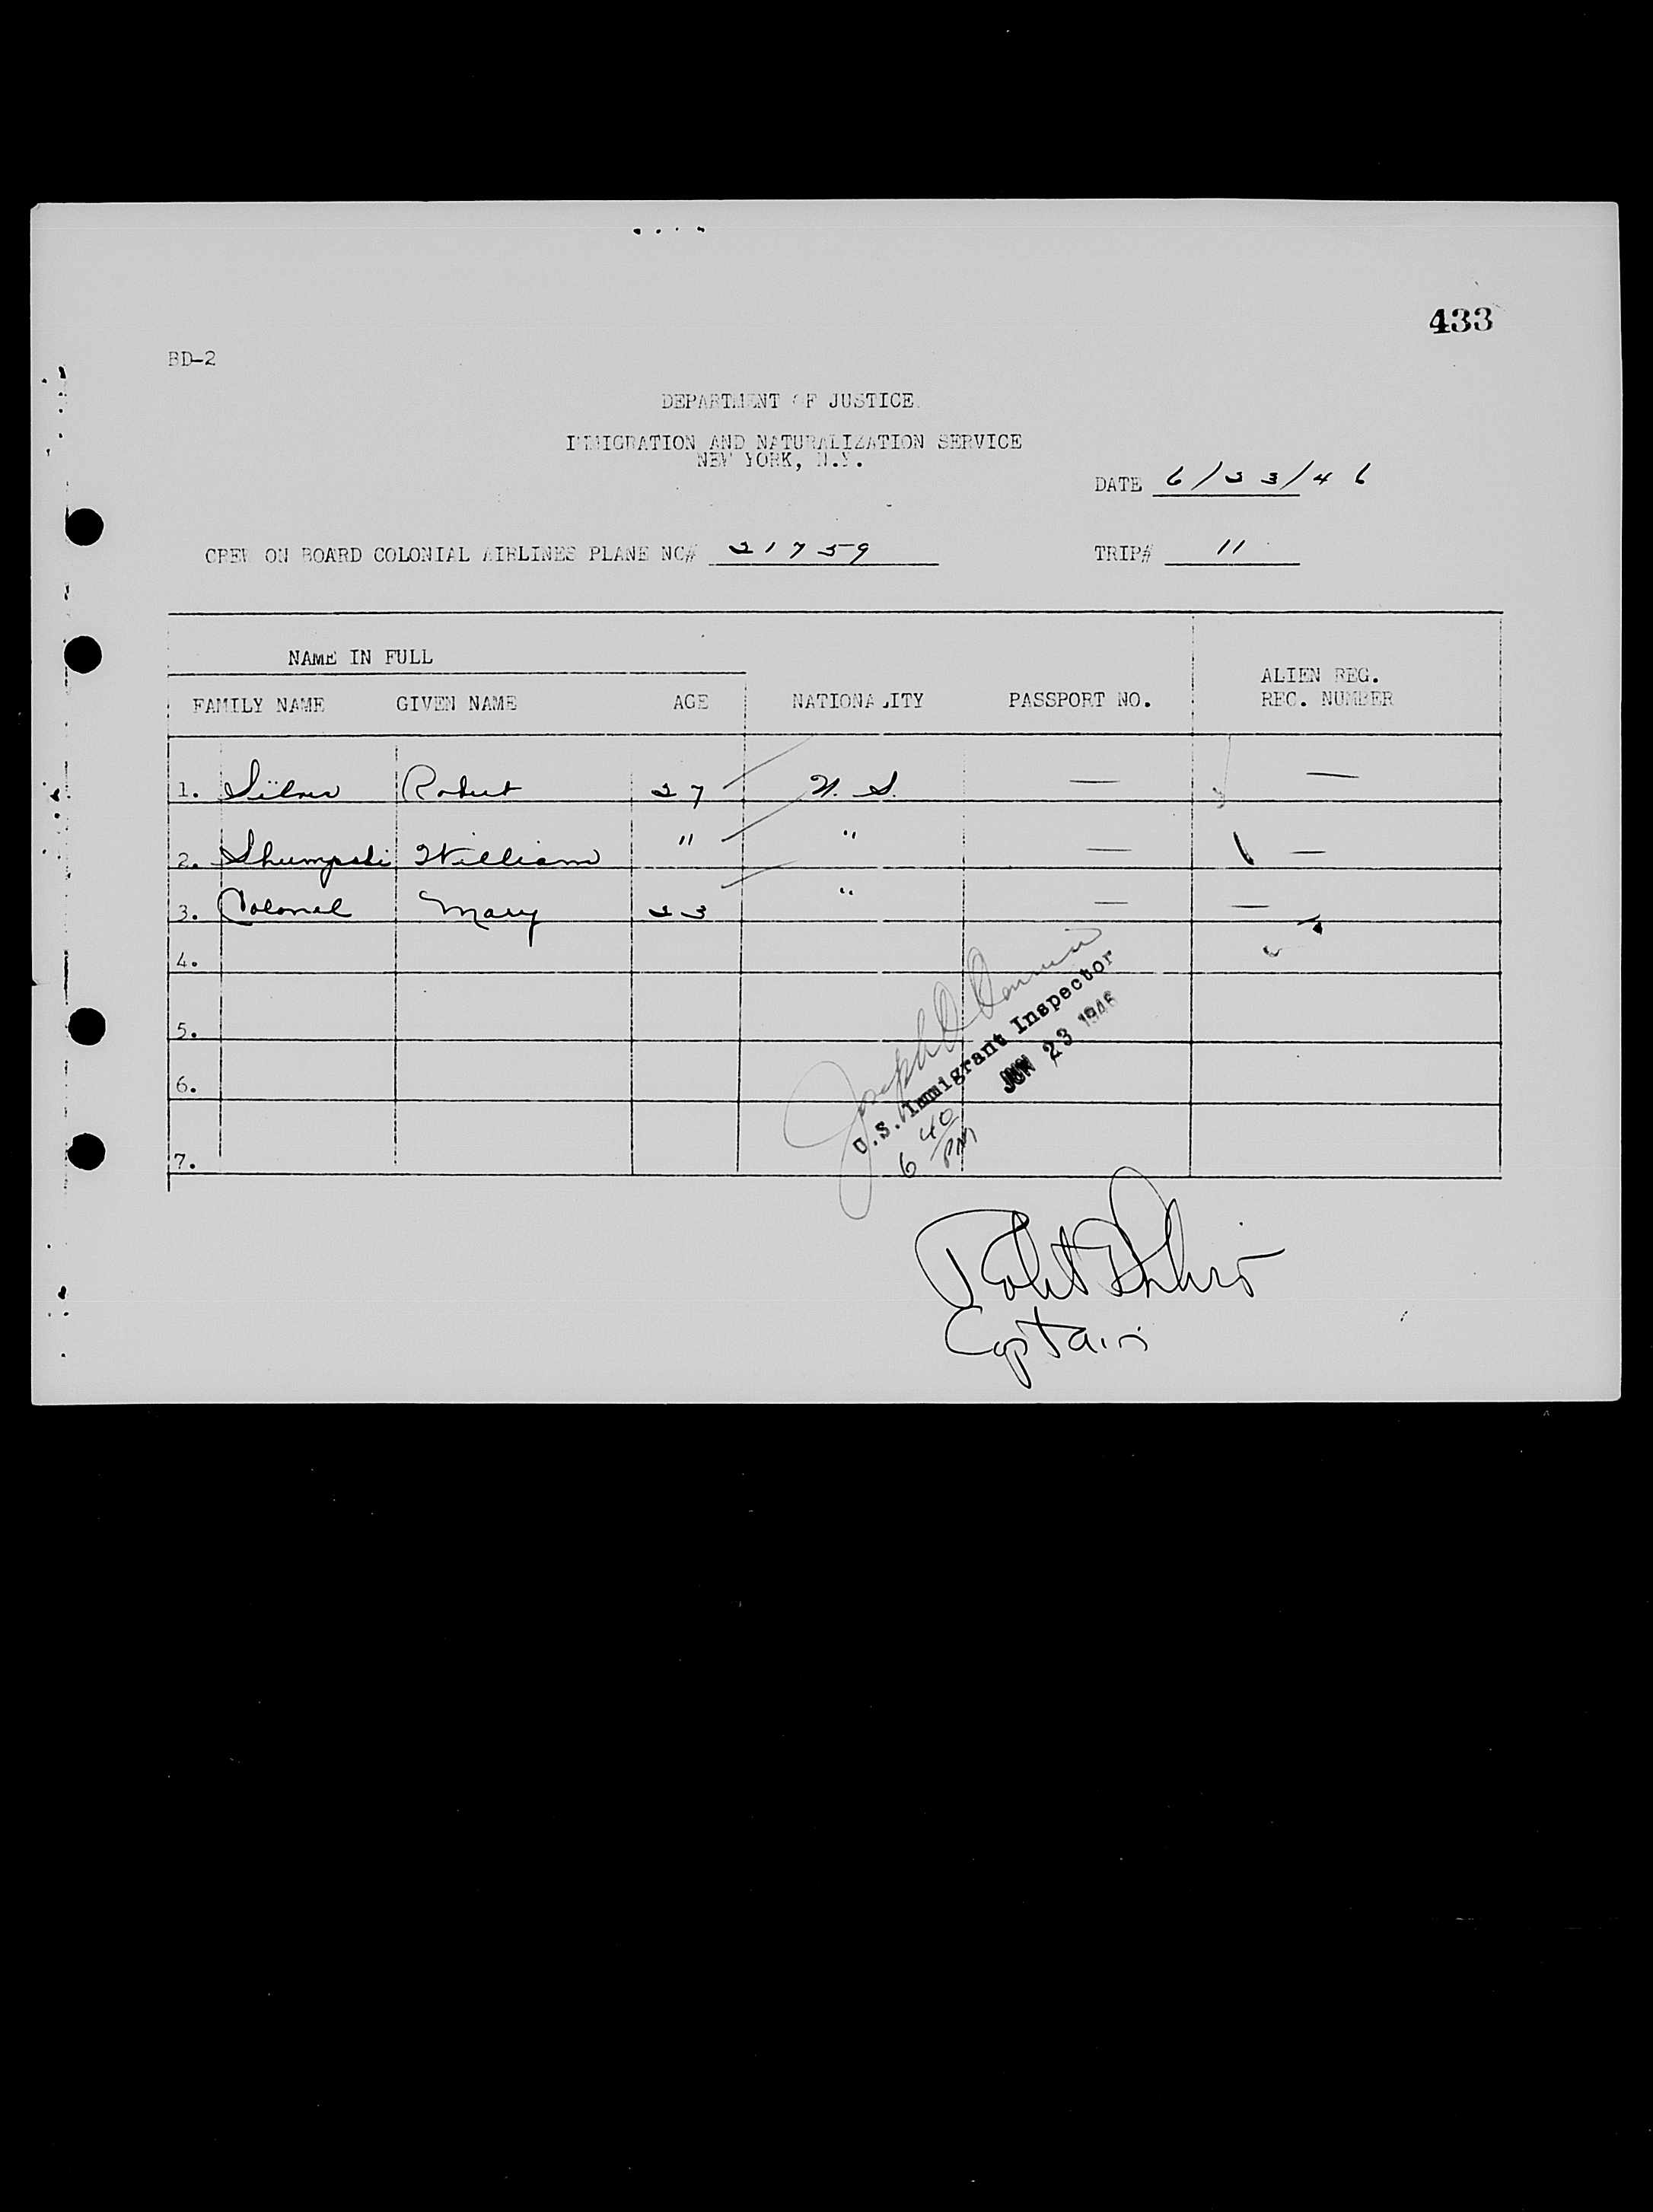 433
BD-2
DEPARTMENT OF JUSTICE
IMMIGRATION AND NATURALIZATION SERVICE
NEW YORK, N.Y.
DATE 6/23/46
CREW ON BOARD COLONIAL AIRLINES PLANE NC# 21759 TRIP# 11
NAME IN FULL
FAMILY NAME GIVEN NAME AGE NATIONALITY PASSPORT NO. ALIEN REG. REC. NUMBER
1. Robert 27 U. S. — —
2. William " " — —
3. Colonel Mary 23 " — —
4.
5.
6.
7.
Joseph
U.S. Immigrant Inspector
JUN 23 1946
6 40 PM
Robert
Captain